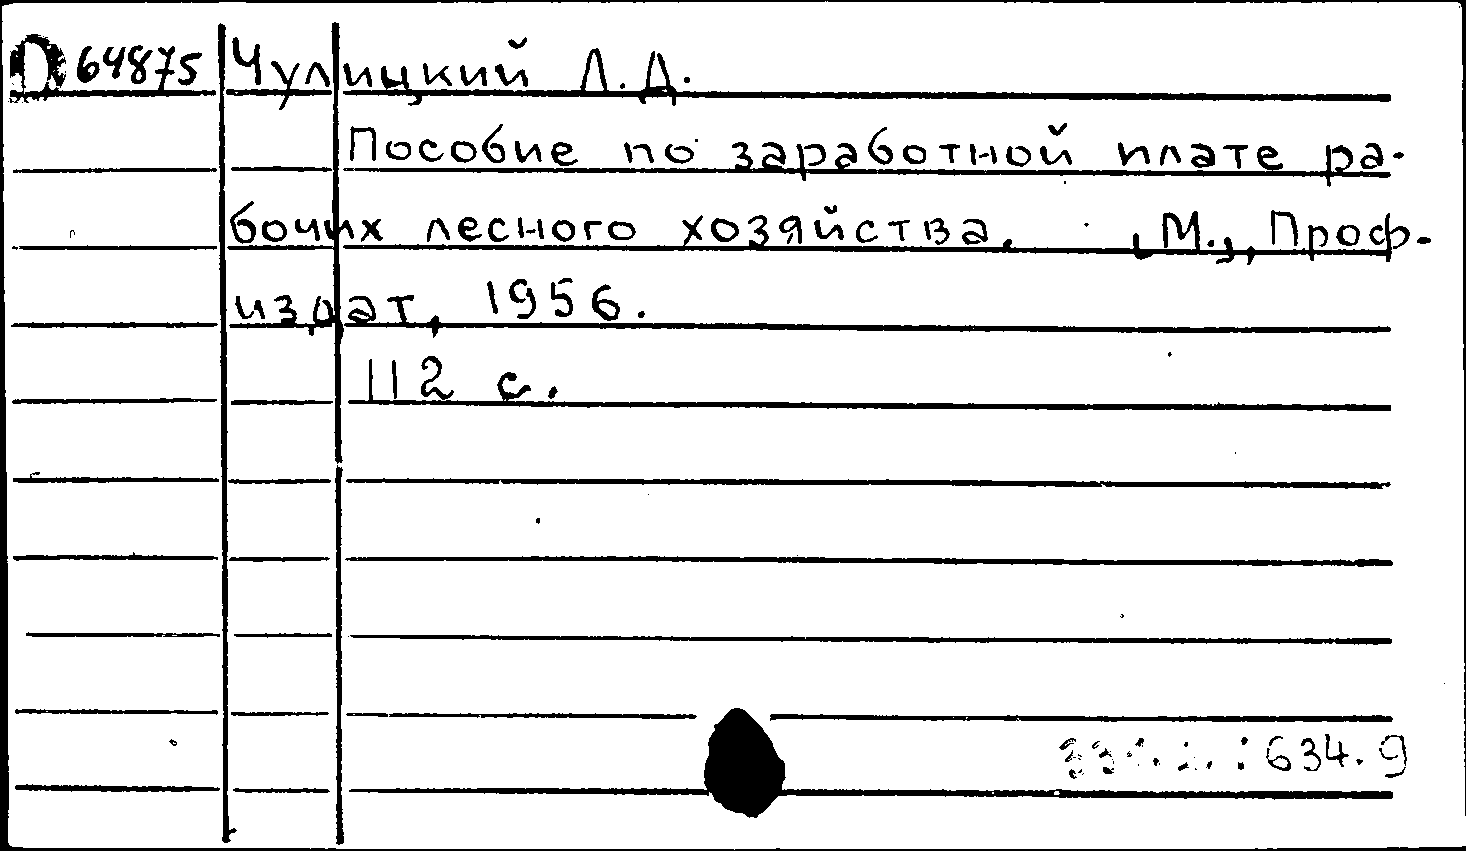 D 64875 Чулицкий Л. Д.
Пособие по заработной плате ра-
бочих лесного хозяйства. , М., , Проф-
издат, 1956.
112 с.
331.2. : 634.9